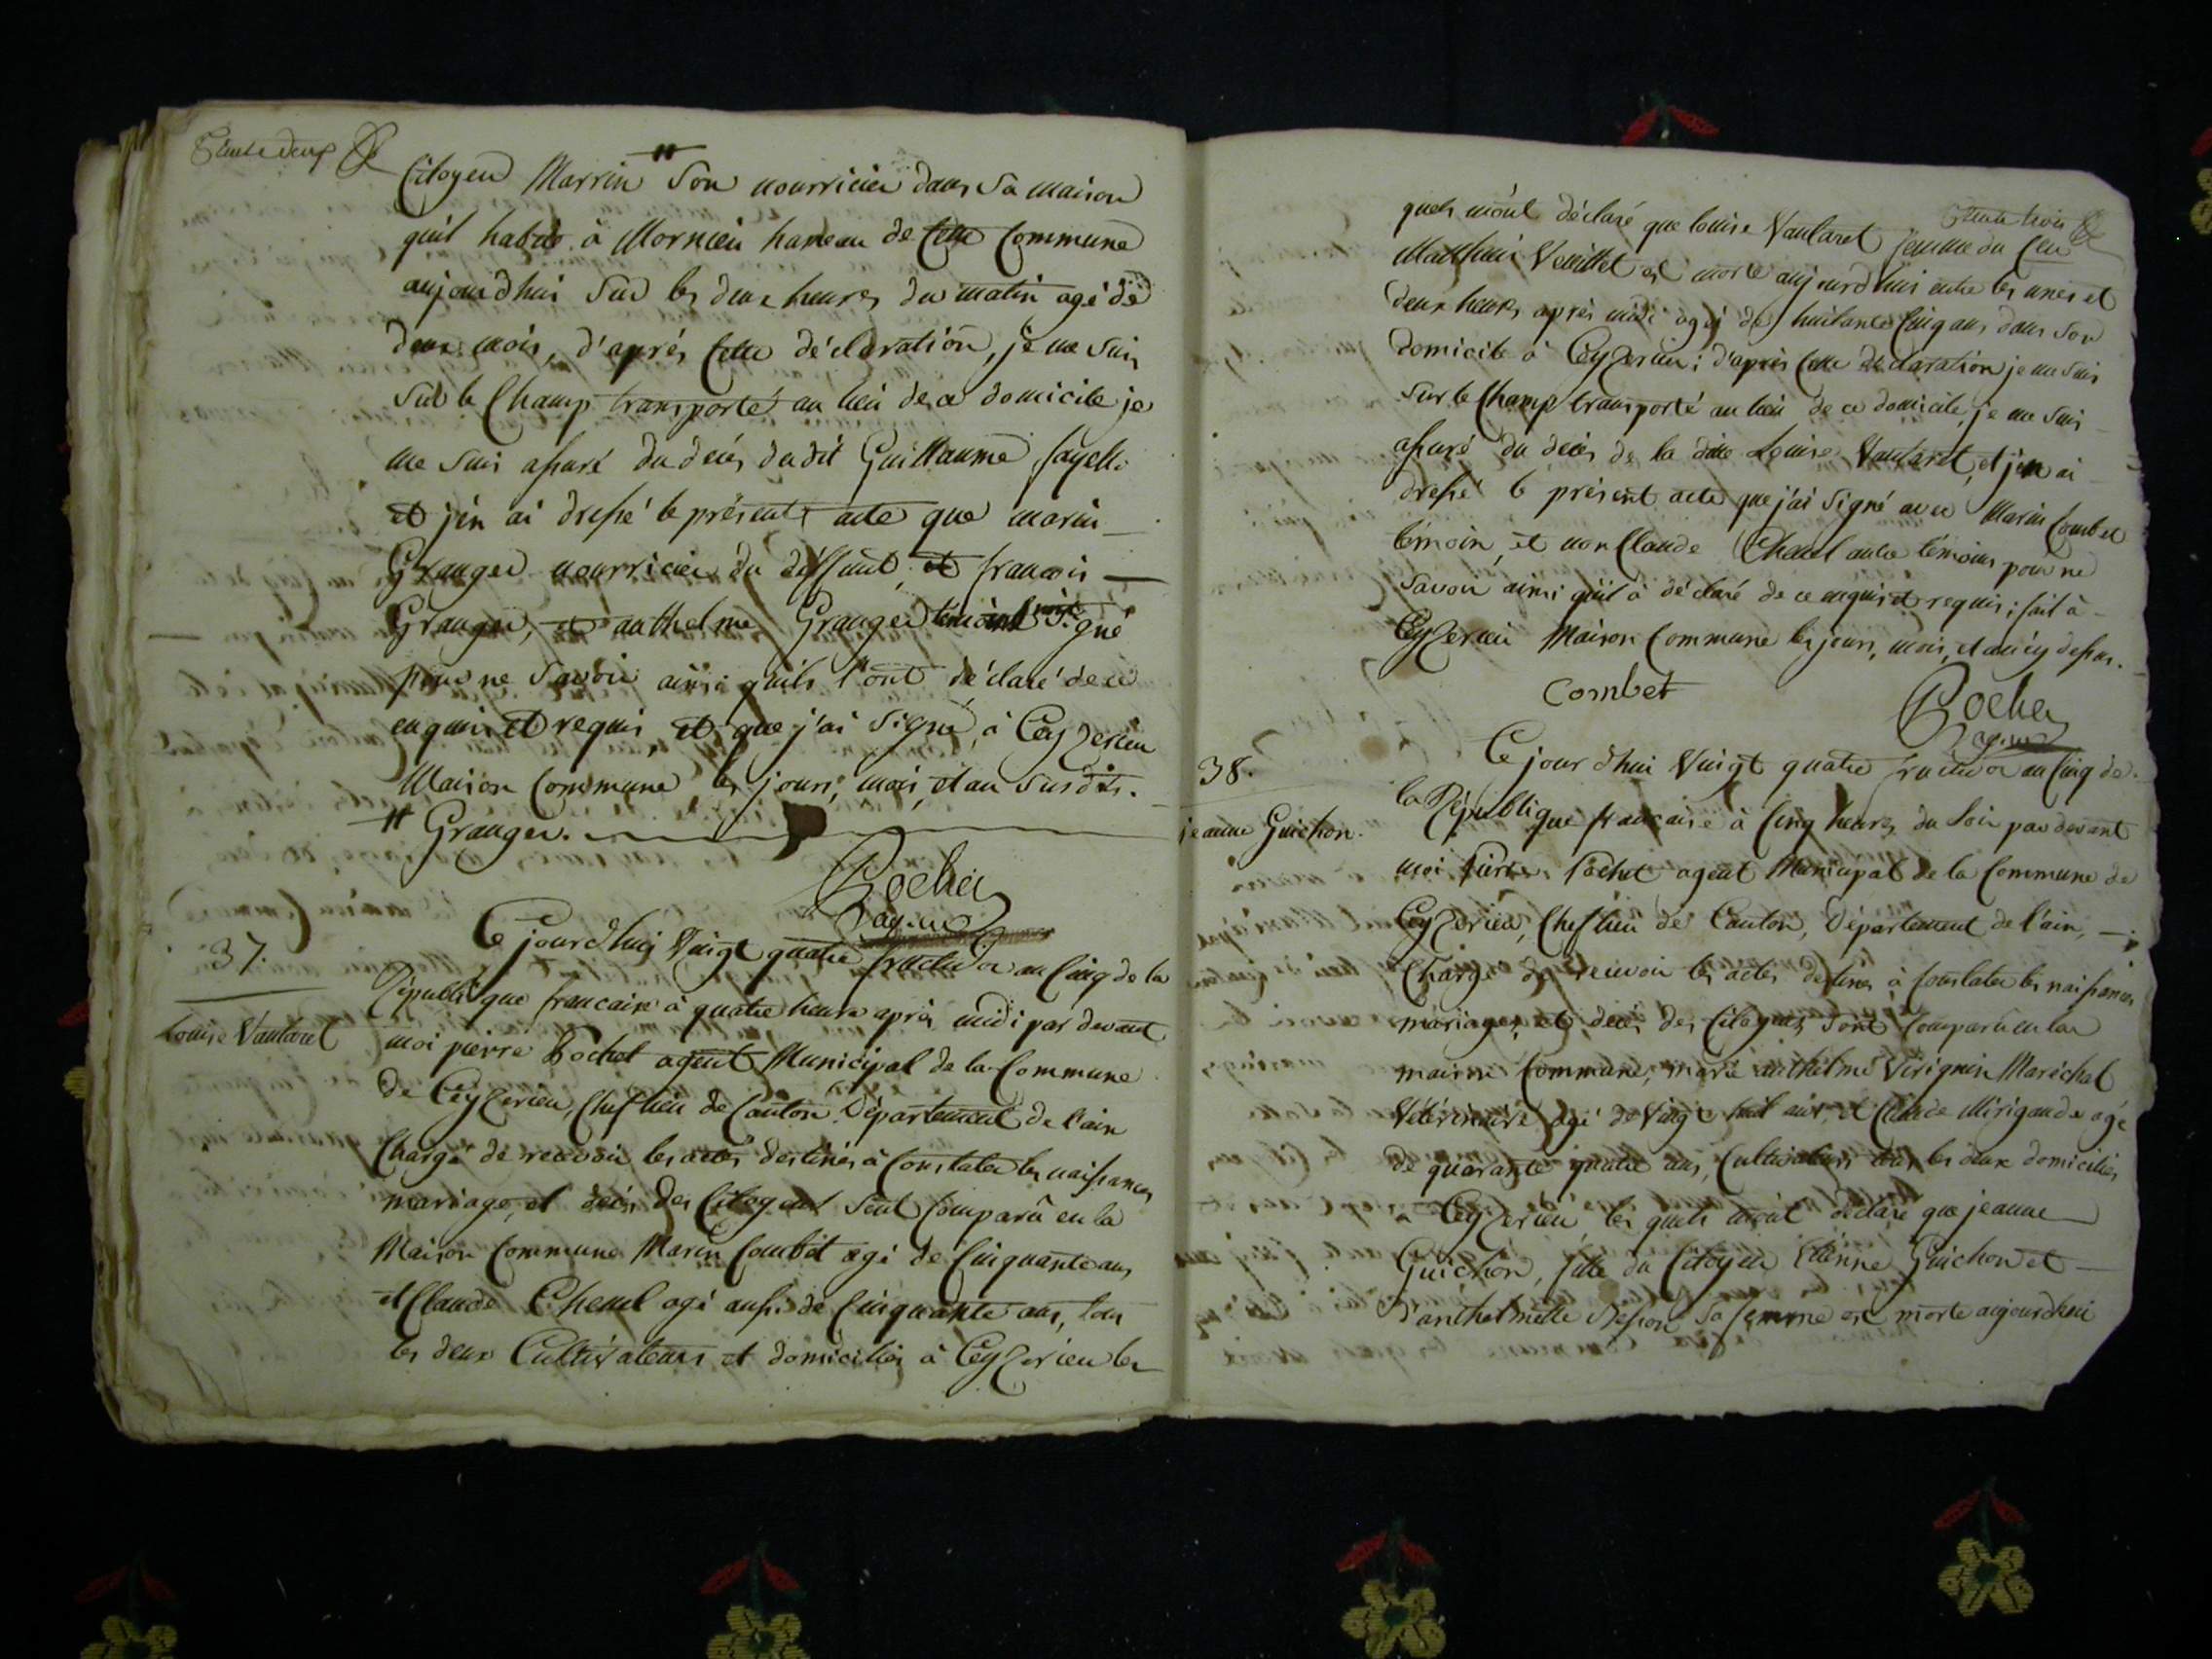 trente deux
Citoyen Marrin # Son nourricier dans Sa maison
qu'il habite à Mornieu hameau de Cette Commune
aujourdhui Sur les deux heures du matin agé de
deux mois, d'aprés Cette déclaration, je me Suis
Sur le Champ transporté au lieu de ce domicile je
me Suis assuré du decés dudit Guillaume fayelle
et j'en ai dressé le présent acte que marin
Granger nourricier du deffunt, et francois
Granger, et anthelme Granger témoins n'ont Signé
pour ne Savoir ainsi quils l'ont déclaré de ce
enquis et requis, et que j'ai Signé, à Ceyzerieu
Maison Commune les jours, mois, et an Susdits.
# Granger.
Rochet
agent
37.
Louise Vautaret
Ce jourdhuy Vingt quatre fructidor an Cinq de la
République francaise à quatre heures après midi par devant
moi pierre Rochet agent Municipal de la Commune
de Ceyzerieu, Chef lieu de Canton Département de l'ain
Chargé de recevoir les actes destinés à Constater les naissances
mariage, et decés des Citoyens Sont Comparû en la
Maison Commune Marin Combet agé de Cinquante ans
et Claude Chenel agé aussi de Cinquante ans, tous
les deux Cultivateurs et domiciliés à Ceyzerieu les
trente trois
quels m'ont déclaré que louise Vautaret femme du feu
Matthieu Veuillet est morte aujourdhui entre les unes et
deux heures après midi agéé de huitante Cinq ans dans Son
domicile à Ceyzerieu; d'aprés Cette déclaration je me Suis
Sur le Champ transporté au lieu de ce domicile, je me Suis
assuré du decés de la dite Louise Vautaret, et j'en ai
dressé le présent acte que j'ai Signé avec Marin Combet
témoin, et non Claude Chenel autre témoins pour ne
Savoir ainsi qu'il à déclaré de ce enquis et requis; fait à
Ceyzerieu Maison Commune les jours, mois, et an cy dessus.
Combet
Rochet
agent
38.
jeanne Guichon.
Ce jour d'hui Vingt quatre fructidor an Cinq de
la République francaise à Cinq heures du Soir par devant
moi Pierre Rochet agent Municipal de la Commune de
Ceyzerieu, Chef lieu de Canton, Département de l'ain,
Chargé de recevoir les actes destinés à Constater les naissances
mariages, et decés des Citoyens, Sont Comparû en la
maison Commune, marie anthelme Virignin Maréchal
Vétérinaire agé de Vingt huit ans, et Claude Mirigande agé
de quarante quatre ans, Cultivateurs tous les deux domiciliés
à Ceyzerieu les quels m'ont déclaré que jeanne
Guichon, fille du Citoyen Etienne Guichon et
d'anthelmette Sa femme est morte aujourdhui